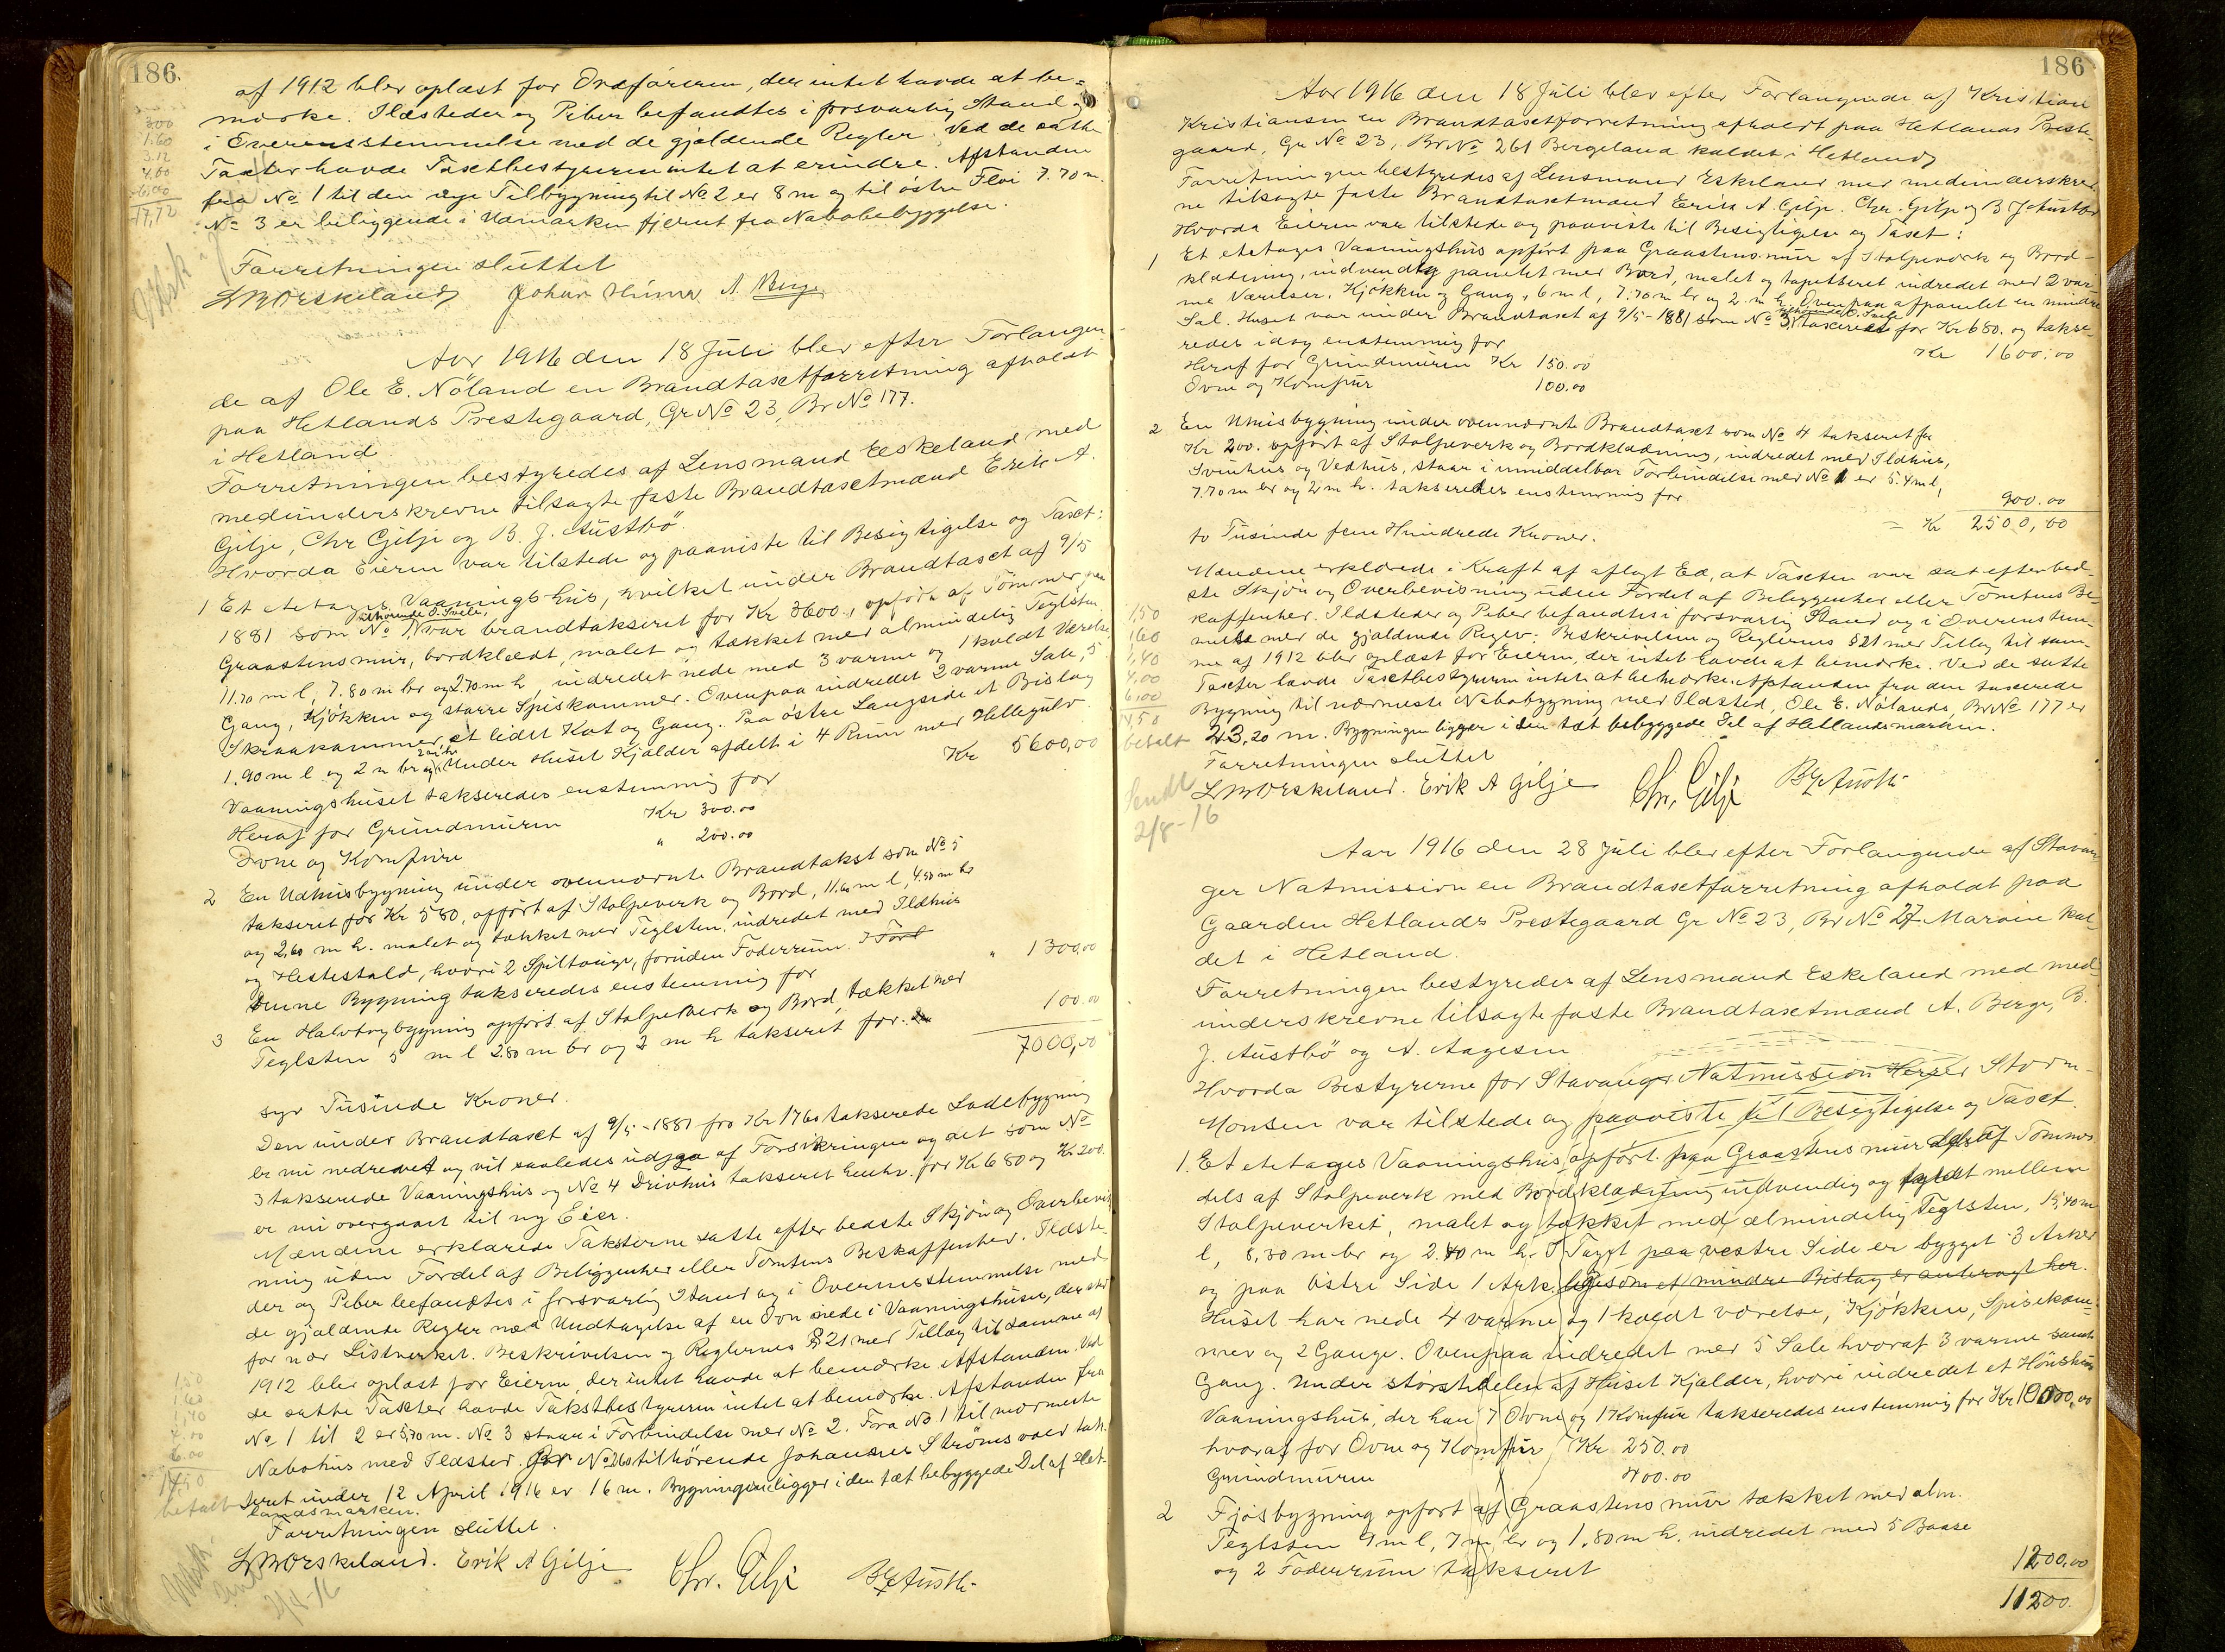 186.
af 1912 blev oplæst for Ordføreren, der intet havde at be-
mærke. Ildsteder og Piber befandtes i forsvarlig Stand og
i Overensstemmelse med de gjældende Regler. Ved de satte
Taxter havde Taxtbestyreren intet at erindre. Afstanden
fra No 1 til den nye Tilbygning til No 2 er 8 m og til østre Fløi 7.70 m.
No 3 er beliggende i Udmarken fjernt fra Nabobebyggelse.
300
1.60
3.12
4.00
6,00
17,72
Forretningen sluttet
Johan A Berge
Aar 1916 den 18 Juli blev efter Forlangen-
de af Ole E. Nöland en Brandtaxtforretning afholdt
paa Hetlands Prestegaard, Gr No 23, Br No 177.
i Hetland.
Forretningen bestyredes af Lensmand Eskeland med
medunderskrevne tilsagte faste Brandtaxtmænd Erik A.
Gilje, Chr Gilje og B. J. Austbö.
Hvorda Eieren var tilstede og paaviste til Besigtigelse og Taxt:
1 Et etetages Vaaningshus, hvilket under Brandtaxt af 9/5
tilhørende O. Svele,
1881 som No 1 var brandtakseret for Kr 3600., opført af Tømmer paa
Graastensmur, bordklædt, malet og tækket med almindelig Teglsten
11.70 m l, 7.80 m br og 2.70 m h, indredet nede med 3 varme og 1 koldt Værelse,
Gang, Kjøkken og større Spiskammer. Ovenpaa indredet 2 varme Sale, 5
Skraakammer, et lidet Kot og Gang. Paa østre Langside et Bislag
1.90 m l og 2 m br og Under Huset Kjælder afdelt i 4 Rum med Hellegulv
Vaaningshuset takseredes enstemmig for Kr 5600,00
Heraf for Grundmuren Kr 300.00
Ovne og Komfure " 200.00
2 En Udhusbygning under ovennævnte Brandtakst som No 5
takseret for Kr 580, opført af Stolpeverk og Bord, 11.60 m l, 4.50 m br
og 2,60 m h. malet og tækket med Teglsten, indredet med Ildhus
og Hestestald, hvori 2 Spiltouge, foruden Foderrum.
Denne Bygning takseredes enstemmig for " 1300,00
3 En Halvtagbygning opført af Stolpeverk og Bord, tækket med
Teglsten 5 m l 2.80 m br og 2 m h takseret for. 100.00
7000,00
syv Tusinde Kroner.
Den under Brandtaxt af 9/5-1881 fro Kr 1760 takserede Ladebygning
er nu nedrevet og vil saaledes udgaa af Forsikringen og det som No
3 takserede Vaaningshus og No 4 Drivhus takseret henhv. for Kr 680 og Kr 200.
er nu overgaaet til ny Eier.
Mændene erklærede Taksterne satte efter bedste Skjøn og Overbevis-
ning uden Fordel af Beliggenhed eller Tomtens Beskaffenhed. Ildste-
der og Piber befandtes i forsvarlig Stand og i Overensstemmelse med
de gjældende Regler med Undtagelse af en Ovn nede i Vaaningshuset, der staar
for nær Listverket. Beskrivelsen og Reglernes § 21 med Tillæg til samme af
1912 blev oplæst for Eieren, der intet havde at bemærke. Afstanden. Ved
de satte Taxter havde Takstbestyreren intet at bemærke. Afstanden fra
No 1 til 2 er 5,70 m. No 3 staar i Forbindelse med No 2. Fra No 1 til nærmeste
Nabohus med Ildsted. Br No 260 tilhørende Johannes Strömsvold tak-
seret under 12 April 1916 er 16 m. Bygningen ligger i den tæt bebyggede Del af Het-
landsmarken.
1,50
1,60
1,40
4.00
6.00
14.50
betalt
Forretningen sluttet.
Erik A Gilje Chr. Gilje
186
Aar 1916 den 18 Juli blev efter Forlangende af Kristian
Kristiansen en Brandtaxtforretning afholdt paa Hetlands Preste-
gaard, Gr No 23, Br No 261 Bergeland kaldet i Hetland
Forretningen bestyredes af Lensmand Eskeland med medunderskrev-
ne tilsagte faste Brandtaxtmænd Erik A. Gilje. Chr. Gilje og B J Austbö
Hvorda Eieren var tilstede og paaviste til Besigtigelse og Taxt:
1 Et etetages Vaaningshus opført paa Graastensmur af Stolpeverk og Bord-
klædning, indvendig panelet med Bord, malet og tapetseret indredet med 2 var-
me Værelser, Kjøkken og Gang, 6 m l, 7.70 m br og 2 m h. Ovenpaa afpanelet en mindre
tilhørende O. Svele
Sal. Huset var under Brandtaxt af 9/5-1881 som No 3 taxeret for Kr 680. og takse-
redes idag enstemmig for Kr 1600.00
Heraf for Grundmuren Kr 150.00
Ovne og Komfur 100.00
2 En Uthusbygning under ovennævnte Brandtaxt som No 4 takseret for
Kr 200. opført af Stolpeverk og Bordklædning, indredet med Ildhus,
Svinhus og Vedhus, staar i umiddelbar Forbindelse med No 1 er 5.4 m l,
7.70 m br og 2 m h. takseredes enstemmig for 900.00
to Tusinde fem Hundrede Kroner. = Kr 2500,00
Mændene erklærede i Kraft af aflagt Ed, at Taxten var sat efter bed-
ste Skjøn og Overbevisning uden Fordel af Beliggenhed eller Tomtens Be-
skaffenhed. Ildsteder og Piber befandtes i forsvarlig Stand og i Overenstem-
melse med de gjældende Regler. Beskrivelsen og Reglernes § 21 med Tillæg til sam-
me af 1912 blev oplæst for Eieren, der intet havde at bemærke. Ved de satte
Taxter havde Taxtbestyreren intet at bemærke. Afstanden fra den taxerede
Bygning til nærmeste Nabobygning med Ildsted, Ole E. Nølands, Br No 177 er
23,20 m. Bygningen ligger i den tæt bebyggede Del af Hetlandsmarken.
1,50
1.60
1,40
4.00
6.00
14,50
betalt
Forretningen sluttet
Erik A Gilje Chr. Gilje
Sendt
2/8-16
Aar 1916 den 28 Juli blev efter Forlangende af Stavan-
ger Natmission en Brandtaxtforretning afholdt paa
Gaarden Hetlands Prestegaard Gr No 23, Br No 27 Maroin kal-
det i Hetland.
Forretningen bestyredes af Lensmand Eskeland med med-
underskrevne tilsagte faste Brandtaxtmænd A. Berge, B.
J. Austbö og A. Aagesen
Hvorda Bestyrerne for Stavanger Natmission Herrer Storm-
Monsen var tilstede og paaviste til Besigtigelse og Taxt.
1. Et etetages Vaaningshus opført paa Graastens mur dels af Tømmer
dels af Stolpeverk med Bordklædning udvendig og mellem
Stolpeverket, malet og tækket med almindelig Teglsten, 15,40 m
l, 8,30 m br og 2.40 m h. I Taget paa vestre Side er bygget 3 Arker
og paa østre Side 1 Ark. ligesom et mindre Bislag er anbragt her.
Huset har nede 4 varme og 1 koldt værelse, Kjøkken, Spisekam-
mer og 2 Gange. Ovenpaa indredet med 5 Sale hvoraf 3 varme samt
Gang. Under størstedelen af Huset Kjælder, hvori indredet et Hønshus
Vaaningshus, der har 7 Ovne og 1 Komfur takseredes enstemmig for Kr 10000,00
hvoraf for Ovne og Komfur Kr 250.00
Grundmuren 400.00
2 Fjøsbygning opført af Graastens mur tækket med alm.
Teglsten 9 m l, 7 m br og 1.80 m h. indredet med 5 Baase
og 2 Foderrum takseret 1200.00
11200.